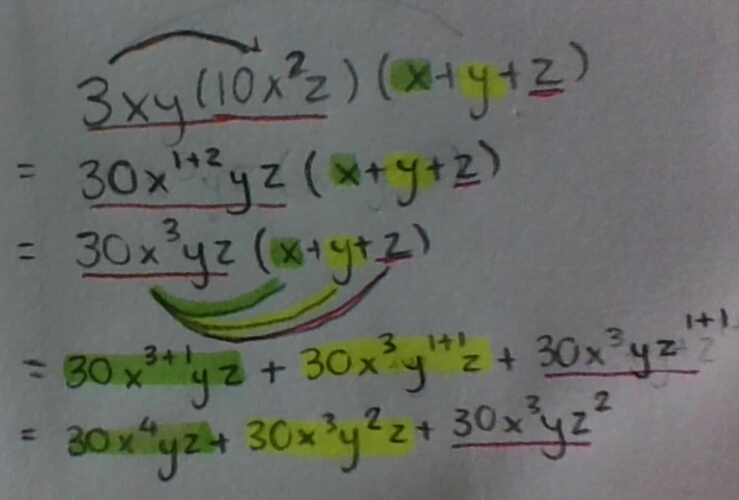 3xy(10x²z)(x+y+z)
= 30x¹⁺²yz(x+y+z)
= 30x³yz(x+y+z)
= 30x³⁺¹yz + 30x³y¹⁺¹z + 30x³yz¹⁺¹
= 30x⁴yz + 30x³y²z + 30x³yz²